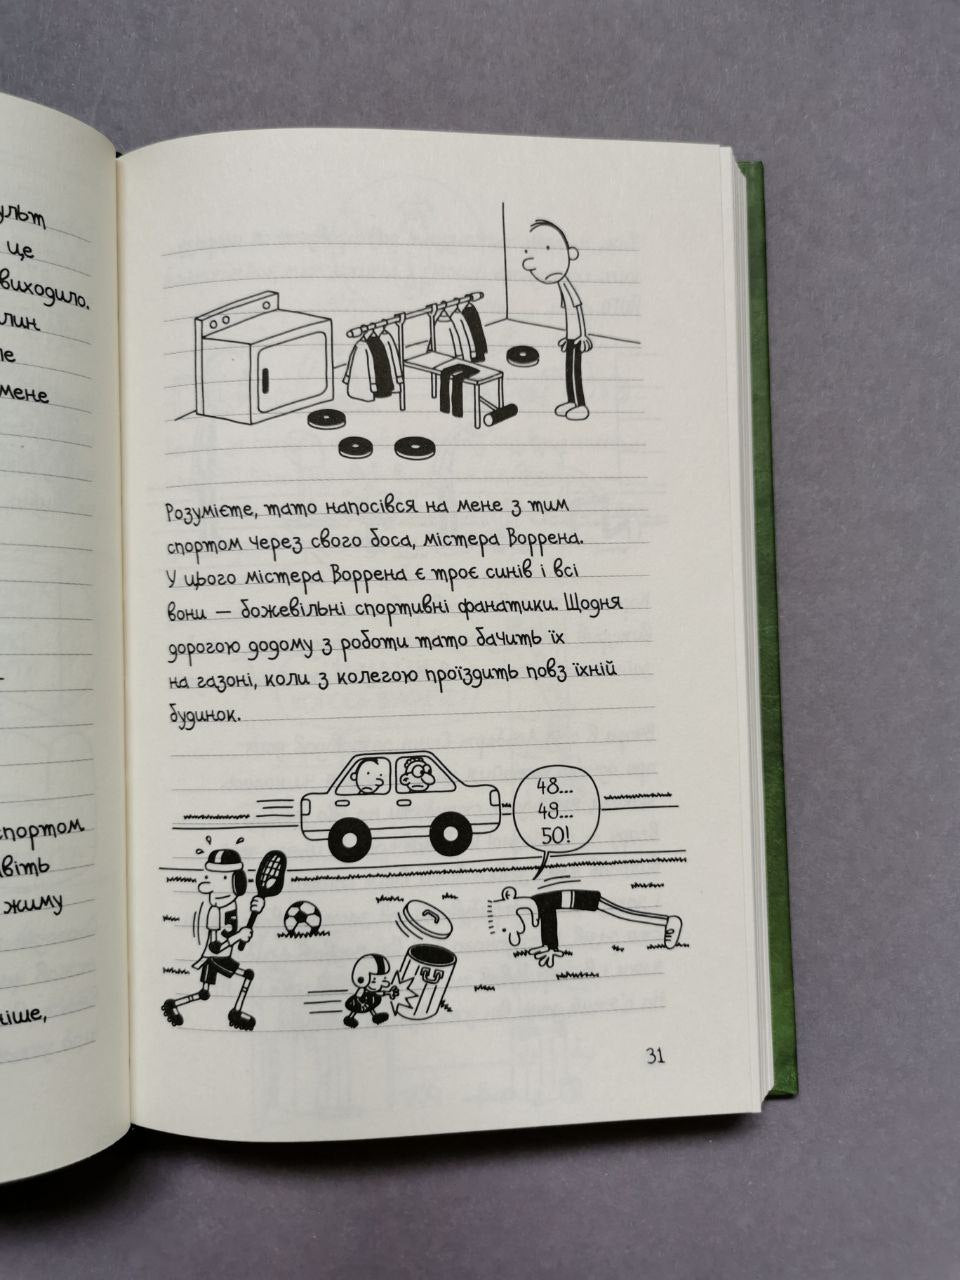 це
виходило.
мене
спортом
жиму
Розумієте, тато напосівся на мене з тим
спортом через свого боса, містера Воррена.
У цього містера Воррена є троє синів і всі
вони — божевільні спортивні фанатики. Щодня
дорогою додому з роботи тато бачить їх
на газоні, коли з колегою проїздить повз їхній
будинок.
48...
49...
50!
5
31